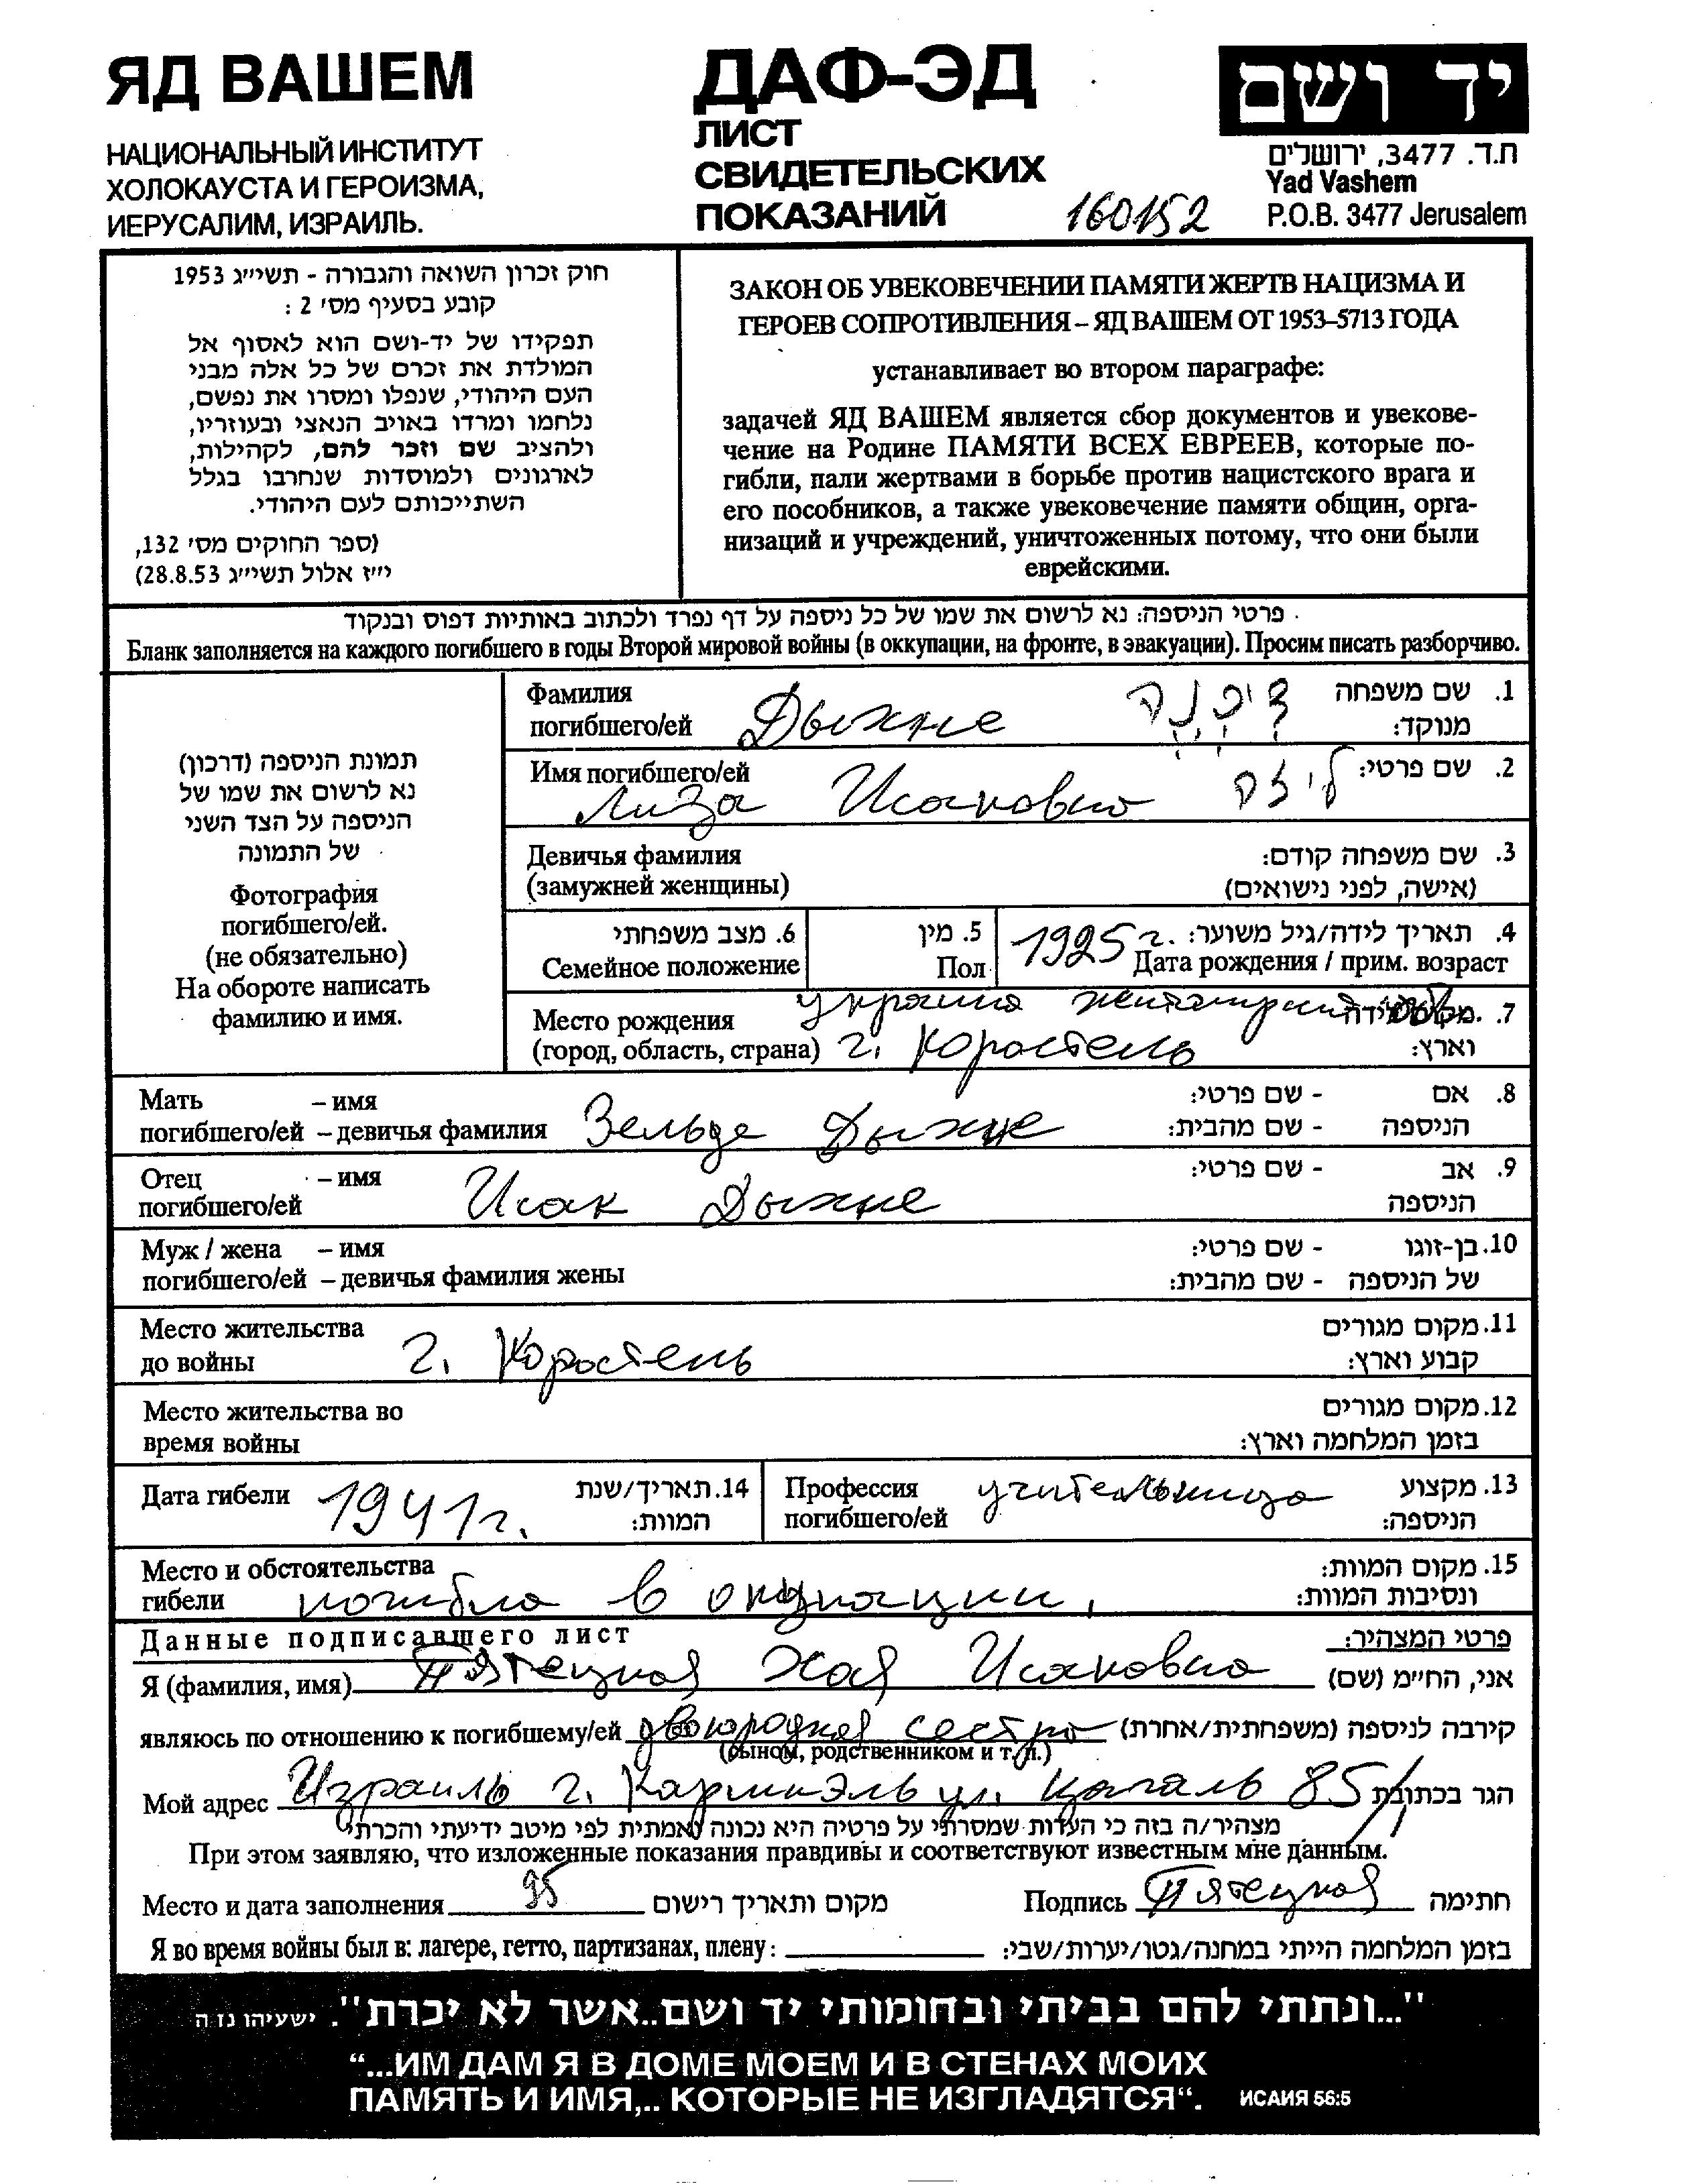 ЯД ВАШЕМ
НАЦИОНАЛЬНЫЙ ИНСТИТУТ
ХОЛОКАУСТА И ГЕРОИЗМА,
ИЕРУСАЛИМ, ИЗРАИЛЬ.
ДАФ-ЭД
ЛИСТ
СВИДЕТЕЛЬСКИХ
ПОКАЗАНИЙ
160152
יד ושם
ת.ד. 3477, ירושלים
Yad Vashem
P.O.B. 3477 Jerusalem
חוק זכרון השואה והגבורה - תשי״ג 1953
קובע בסעיף מס׳ 2 :
תפקידו של יד-ושם הוא לאסוף אל
המולדת את זכרם של כל אלה מבני
העם היהודי, שנפלו ומסרו את נפשם,
נלחמו ומרדו באויב הנאצי ובעוזריו,
ולהציב שם וזכר להם, לקהילות,
לארגונים ולמוסדות שנחרבו בגלל
השתייכותם לעם היהודי.
(ספר החוקים מס׳ 132,
י״ז אלול תשי״ג 28.8.53)
ЗАКОН ОБ УВЕКОВЕЧЕНИИ ПАМЯТИ ЖЕРТВ НАЦИЗМА И
ГЕРОЕВ СОПРОТИВЛЕНИЯ – ЯД ВАШЕМ ОТ 1953–5713 ГОДА
устанавливает во втором параграфе:
задачей ЯД ВАШЕМ является сбор документов и увекове-
чение на Родине ПАМЯТИ ВСЕХ ЕВРЕЕВ, которые по-
гибли, пали жертвами в борьбе против нацистского врага и
его пособников, а также увековечение памяти общин, орга-
низаций и учреждений, уничтоженных потому, что они были
еврейскими.
פרטי הניספה: נא לרשום את שמו של כל ניספה על דף נפרד ולכתוב באותיות דפוס ובנקוד
Бланк заполняется на каждого погибшего в годы Второй мировой войны (в оккупации, на фронте, в эвакуации). Просим писать разборчиво.
תמונת הניספה (דרכון)
נא לרשום את שמו של
הניספה על הצד השני
של התמונה
Фотография
погибшего/ей.
(не обязательно)
На обороте написать
фамилию и имя.
Фамилия
погибшего/ей Дыхне
1. שם משפחה
מנוקד:
Имя погибшего/ей 2. שם פרטי: ליזה
Лиза Исаковна
Девичья фамилия 3. שם משפחה קודם:
(замужней женщины) (אישה, לפני נישואים)
6. מצב משפחתי
Семейное положение
5. מין
Пол
4. תאריך לידה/גיל משוער: 1925 г.
Дата рождения / прим. возраст
украина житомирская обл.
Место рождения 7. מקום לידה
(город, область, страна) г. Коростень וארץ:
Мать – имя 8. אם - שם פרטי:
погибшего/ей – девичья фамилия Зельда Дыхне הניספה - שם מהבית:
Отец – имя 9. אב - שם פרטי:
погибшего/ей Исак Дыхне הניספה
Муж / жена – имя 10. בן-זוגו - שם פרטי:
погибшего/ей – девичья фамилия жены של הניספה - שם מהבית:
Место жительства 11. מקום מגורים
до войны г. Коростень קבוע וארץ:
Место жительства во 12. מקום מגורים
время войны בזמן המלחמה וארץ:
Дата гибели 1941 г. 14. תאריך/שנת
המוות:
Профессия учительница 13. מקצוע
погибшего/ей הניספה:
Место и обстоятельства 15. מקום המוות:
гибели погибла в окупации, ונסיבות המוות:
Данные подписавшего лист פרטי המצהיר:
Я (фамилия, имя) Пятецкая Хая Исаковна אני, הח״מ (שם)
являюсь по отношению к погибшему/ей двоюродная сестра קירבה לניספה (משפחתית/אחרת)
(сыном, родственником и т.п.)
Мой адрес Израиль г. Кармиэль ул. цагаль 85/1 הגר בכתובת
מצהיר/ה בזה כי העדות שמסרתי על פרטיה היא נכונה ואמתית לפי מיטב ידיעתי והכרתי
При этом заявляю, что изложенные показания правдивы и соответствуют известным мне данным.
Место и дата заполнения 95 מקום ותאריך רישום Подпись Пятецкая חתימה
Я во время войны был в: лагере, гетто, партизанах, плену: בזמן המלחמה הייתי במחנה/גטו/יערות/שבי:
"...ונתתי להם בביתי ובחומותי יד ושם..אשר לא יכרת". ישעיהו נז ה
“...ИМ ДАМ Я В ДОМЕ МОЕМ И В СТЕНАХ МОИХ
ПАМЯТЬ И ИМЯ,.. КОТОРЫЕ НЕ ИЗГЛАДЯТСЯ“. ИСАИЯ 56:5